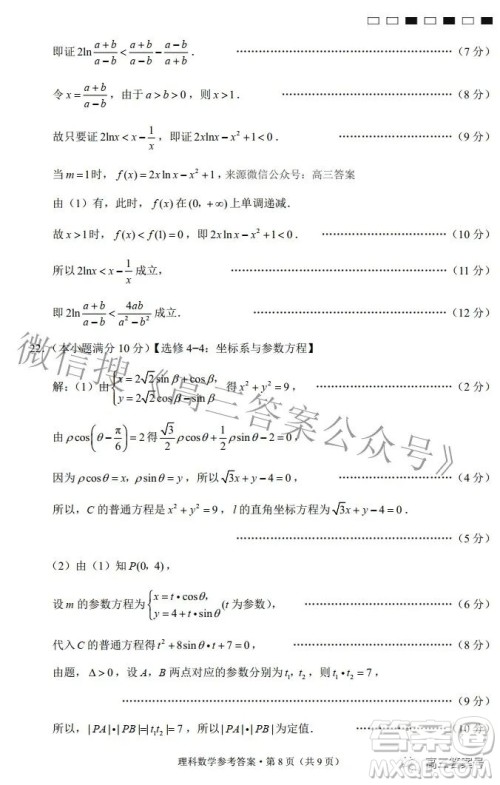 即证2ln (a+b)/(a−b) < (a+b)/(a−b) − (a−b)/(a+b)． ………………………………（7 分）
令 x = (a+b)/(a−b)，由于 a＞b＞0，则 x＞1． ………………………………（8 分）
故只要证2lnx < x − 1/x，即证2xlnx − x²+1<0． ………………………………（9 分）
当 m=1时， f(x)=2xlnx−x²+1，来源微信公众号：高三答案
由（1）有，此时， f(x)在(0，+∞)上单调递减．
故 x>1时， f(x)<f(1)=0，即2xlnx−x²+1<0． ………………………………（10 分）
所以2lnx < x − 1/x 成立， ………………………………（11 分）
即2ln (a+b)/(a−b) < 4ab/(a²−b²) 成立．
22.（本小题满分 10 分）【选修 4−4：坐标系与参数方程】
解：（1）由{x=2√2sinβ+cosβ， y=2√2cosβ−sinβ 得 x²+y²=9， ………………………………（2 分）
由 ρcos(θ−π/6)=2得 √3/2 ρcosθ+1/2 ρsinθ−2=0，
因为 ρcosθ=x，ρsinθ=y，所以√3x+y−4=0． ………………………………（4 分）
所以，C 的普通方程是 x²+y²=9，l 的直角坐标方程为√3x+y−4=0．
………………………………（5 分）
（2）由（1）知 P(0，4)，
设 m 的参数方程为{x=t•cosθ， y=4+t•sinθ (t 为参数)， ………………………………（6 分）
代入 C 的普通方程得 t²+8sinθ•t+7=0， ………………………………（8 分）
由题，Δ>0，设 A，B 两点对应的参数分别为 t₁，t₂，则 t₁•t₂=7，
………………………………（9 分）
所以，|PA|•|PB|=|t₁t₂|=7，所以|PA|•|PB|为定值． ………………………………（10 分）
理科数学参考答案・第 8 页（共 9 页）
微信搜《高三答案公众号》
高三答案号